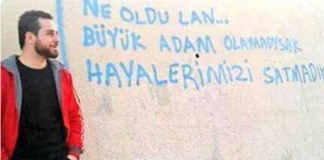 NE OLDU LAN...
BÜYÜK ADAM OLAMADYSAK
HAYALERİMİZİ SATMADIK